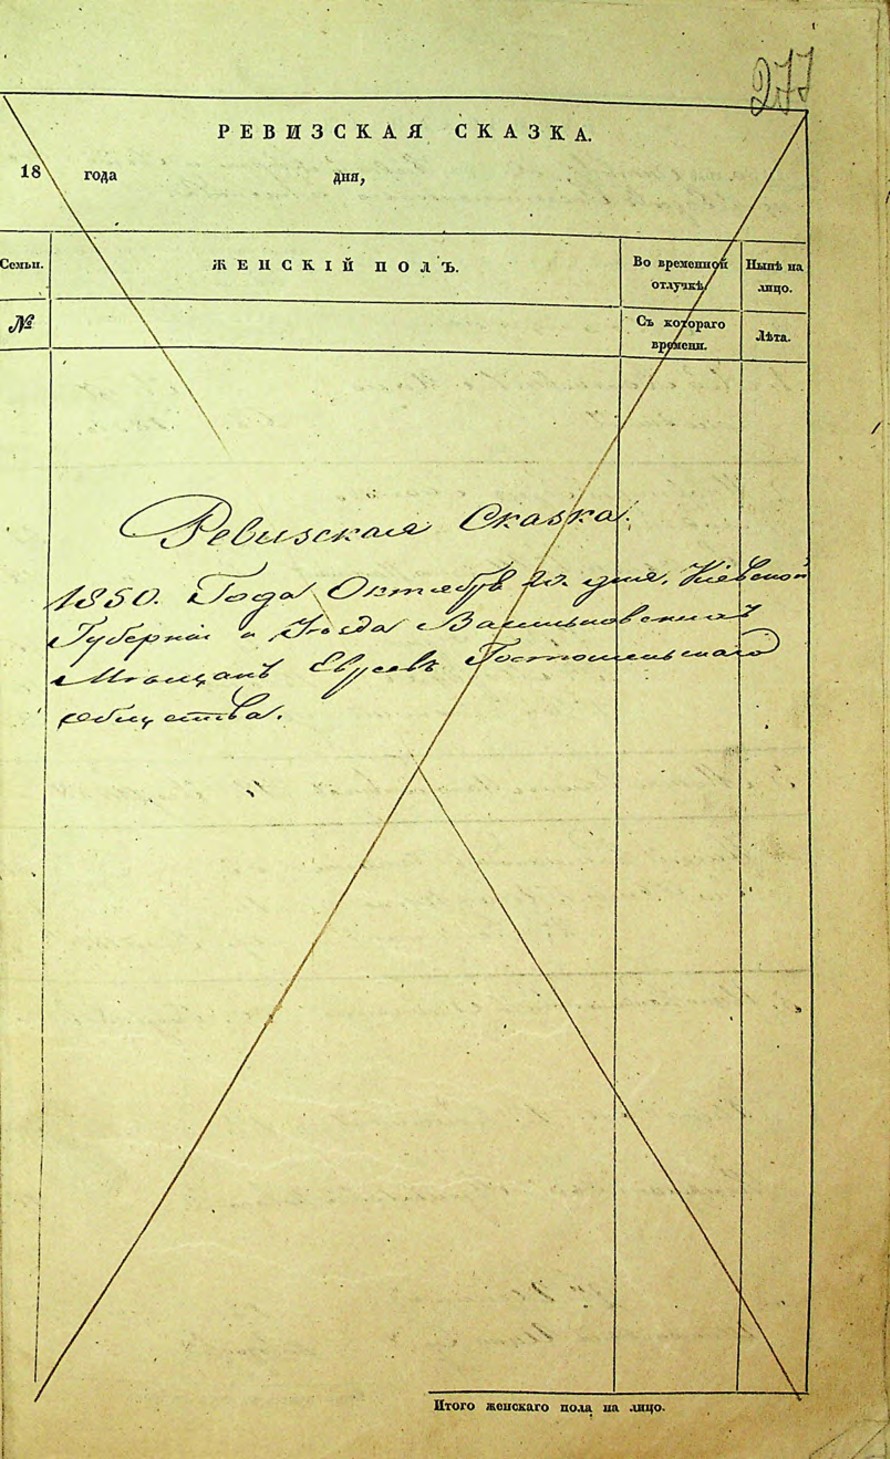 277
РЕВИЗСКАЯ СКАЗКА.
18 года дня,
Семьи. ЖЕНСКІЙ ПОЛЪ. Во временной отлучкѣ. Нынѣ на лицо.
№ Съ котораго времени. Лѣта.
Ревизская Сказка.
1850. Года Октября 20. дня, Кіевской
Губерніи и Уѣзда Васильковскихъ
Мѣщанъ Евреевъ
общества.
Итого женскаго пола на лицо.